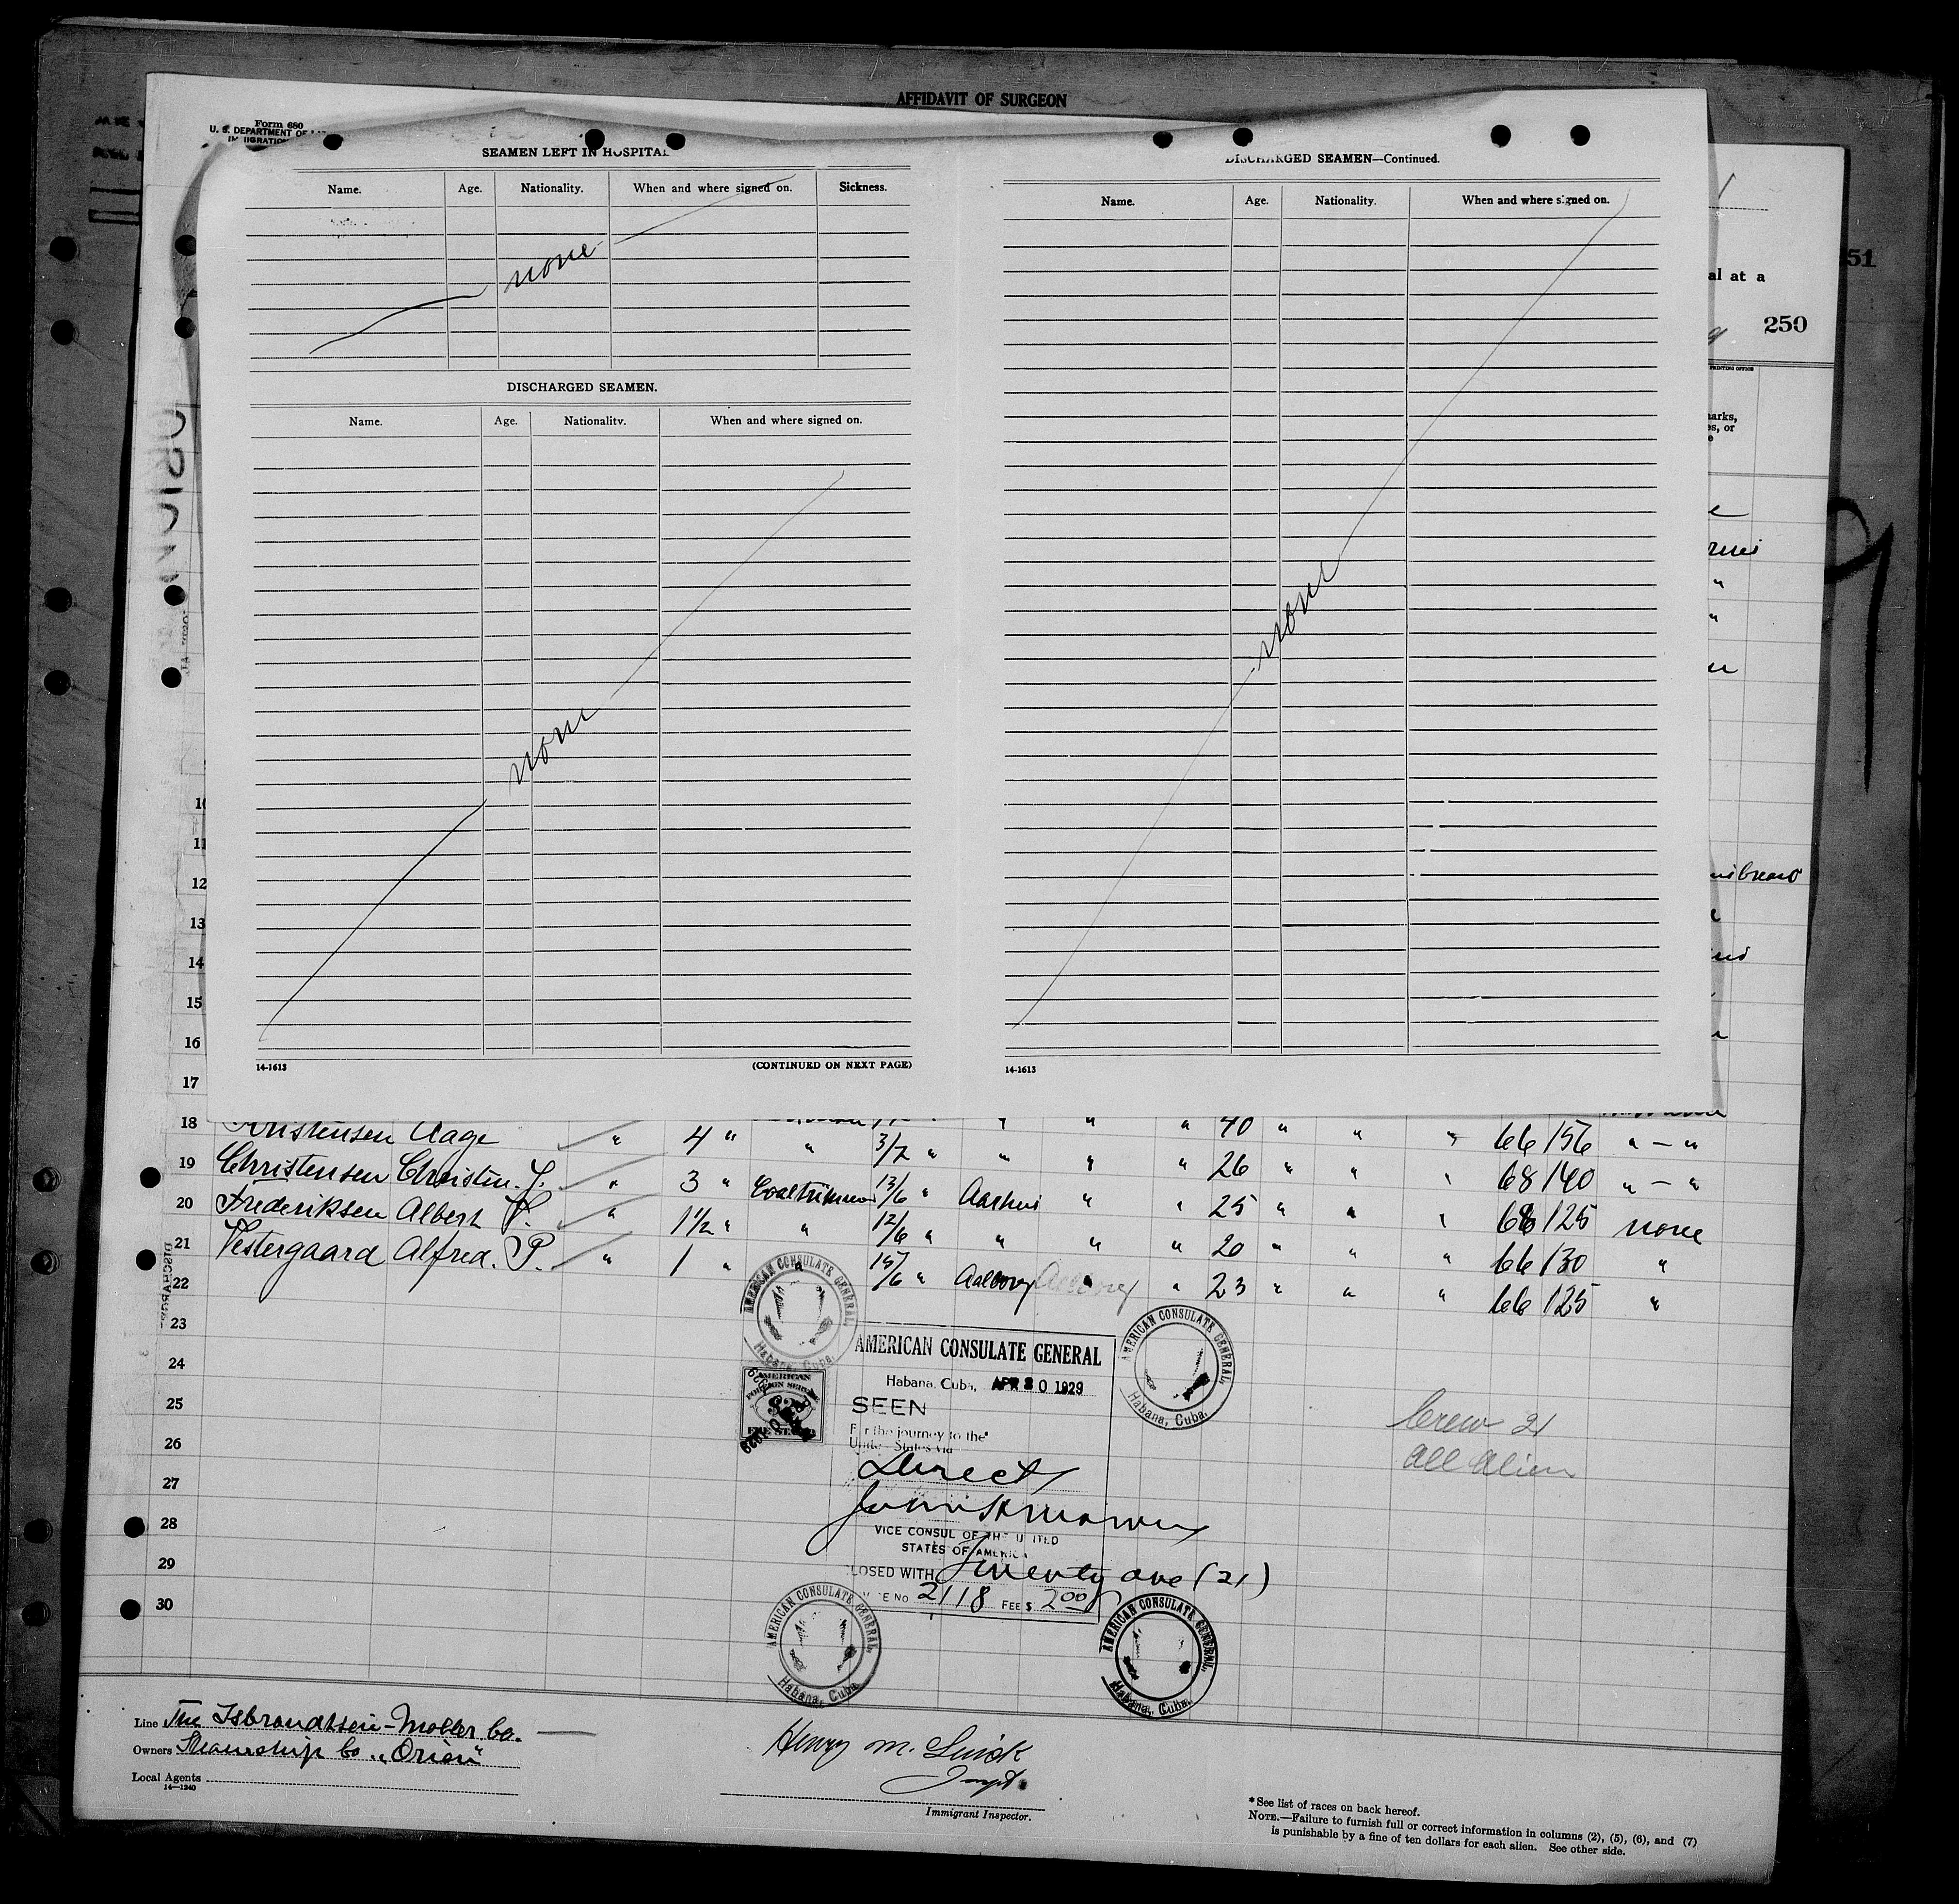 AFFIDAVIT OF SURGEON
Form 680
U. S. DEPARTMENT OF
SEAMEN LEFT IN HOSPITAL
Name. Age. Nationality. When and where signed on. Sickness.
none
DISCHARGED SEAMEN.
Name. Age. Nationality. When and where signed on.
none
14-1613 (CONTINUED ON NEXT PAGE)
DISCHARGED SEAMEN—Continued.
Name. Age. Nationality. When and where signed on.
none
14-1613
51
al at a
250
PRINTING OFFICE
arks,
es, or
e
9
10
11
12
13
14
15
16
17
18 Kristensen Aage " 4 " " 3/7 " " " " 40 " " " 66 156 " — "
19 Christensen Christen. J. " 3 " Coaltrimmer 13/6 " Aarhus " " 26 " " " 68 140 " — "
20 Frederiksen Albert " 1½ " " 12/6 " " " " 25 " " " 125 none
21 Vestergaard Alfred. P. " 1 " " 15/6 " Aalborg " " 20 " " " 66 130 "
22 23 " " " 66 125 "
23
24
25
26
27
28
29
30
AMERICAN CONSULATE GENERAL
Habana, Cuba.
AMERICAN CONSULATE GENERAL
Habana, Cuba, APR 20 1929
SEEN
For the journey to the
United States via
Direct
VICE CONSUL OF THE UNITED
STATES OF AMERICA
CLOSED WITH Twenty one (21)
E NO 2118 FEE $ 2.00
AMERICAN CONSULATE GENERAL,
Habana, Cuba.
AMERICAN
FOREIGN SERVICE
$2
FEE STAMP
Crew 21
All Alien
AMERICAN CONSULATE GENERAL,
Habana, Cuba.
AMERICAN CONSULATE GENERAL,
Habana, Cuba.
Line The Isbrandtsen-Moller Co.
Owners Steamship Co. "Orion"
Local Agents
14—1240
Henry M.
Inspt.
Immigrant Inspector.
*See list of races on back hereof.
NOTE.—Failure to furnish full or correct information in columns (2), (5), (6), and (7)
is punishable by a fine of ten dollars for each alien. See other side.